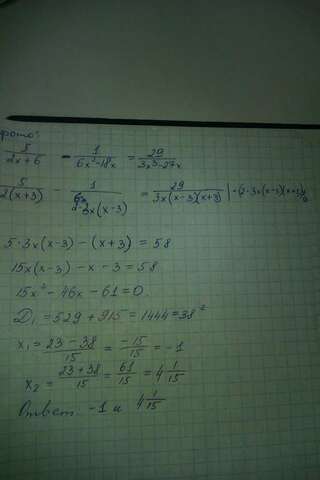 фото:
5/(2x+6) - 1/(6x²-18x) = 29/(3x³-27x)
5/(2(x+3)) - 1/(2·3x(x-3)) = 29/(3x(x-3)(x+3)) | ·2·3x(x-3)(x+3)
5·3x(x-3) - (x+3) = 58
15x(x-3) - x - 3 = 58
15x² - 46x - 61 = 0
D₁ = 529 + 915 = 1444 = 38²
x₁ = (23-38)/15 = -15/15 = -1
x₂ = (23+38)/15 = 61/15 = 4 1/15
Ответ -1 и 4 1/15